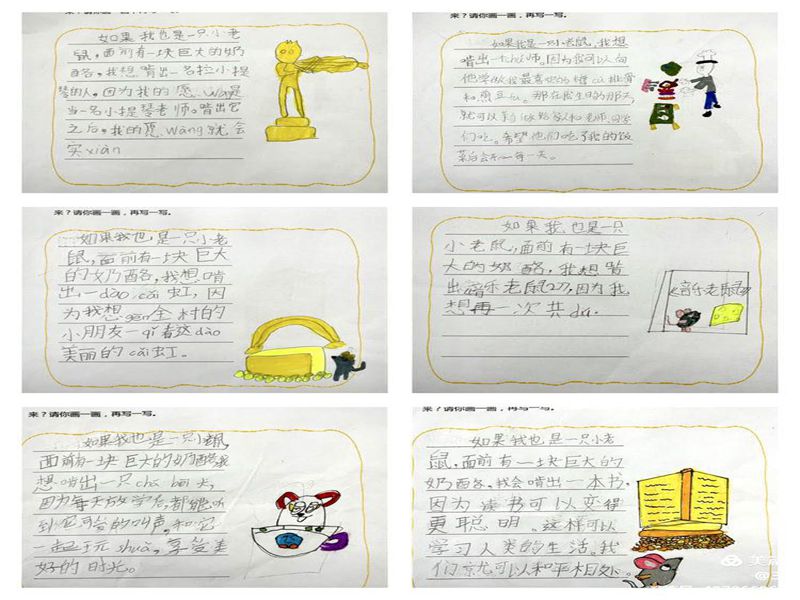 来？请你画一画，再写一写。
如果我也是一只小老
鼠，面前有一块巨大的奶
酪，我想啃出一名拉小提
琴的人。因为我的愿wàng是
当一名小提琴老师。啃出它
之后，我的愿wàng就会
实xiàn
来？请你画一画，再写一写。
如果我是一只小老鼠，我想
啃出一个chú师，因为我可以向
他学做我最喜欢的糖cù排骨
和
就可以
们吃。希望他们吃了我的饭
来？请你画一画，再写一写。
如果我也是一只小老
鼠，面前有一块巨大
的奶奶酪，我想啃
出一dào cǎi虹，因
为我想gēn全村的
小朋友一qǐ看这dào
美丽的cǎi虹。
如果我也是一只
小老鼠，面前有一块巨
大的奶酪，我想啃
出音乐老鼠27，因为我
想再一次共dú.
《音乐老鼠》
来？请你画一画，再写一写。
如果我也是一只小老鼠，
面前有一块巨大的奶酪我
想啃出一只chá bēi犬，
因为每天放学后，都能听
到它可爱的叫声，和它
一起玩shuǎ，享受美
好的时光。
来？请你画一画，再写一写。
如果我也是一只小老
鼠，面前有一块巨大的
奶酪，我会啃出一本书，
因为读书可以变得
更聪明。这样可以
学习人类的生活。我
们就可以和平相处。